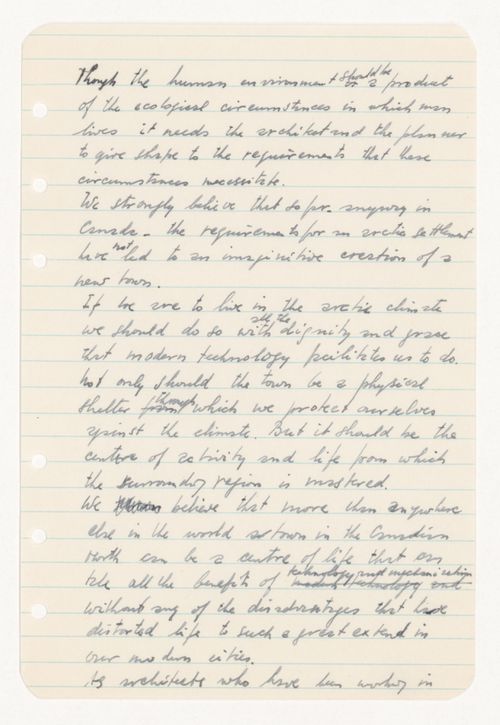 Though the human environment should be a product
of the ecological circumstances in which man
lives it needs the architect and the planner
to give shape to the requirements that these
circumstances necessitate.
We strongly believe that so far. anyway in
Canada - the requirements for an arctic settlement
have not led to an imaginitive creation of a
new town.
If we are to live in the arctic climate
we should do so with all the dignity and grace
that modern technology facilitates us to do.
Not only should the town be a physical
shelter through which we protect ourselves
against the climate. But it should be the
centre of activity and life from which
the surrounding region is mastered.
We believe that more than anywhere
else in the world a town in the Canadian
North can be a centre of life that can
take all the benefits of technology and mechanization
without any of the disadvantages that have
distorted life to such a great extend in
our modern cities.
As architects who have been working in